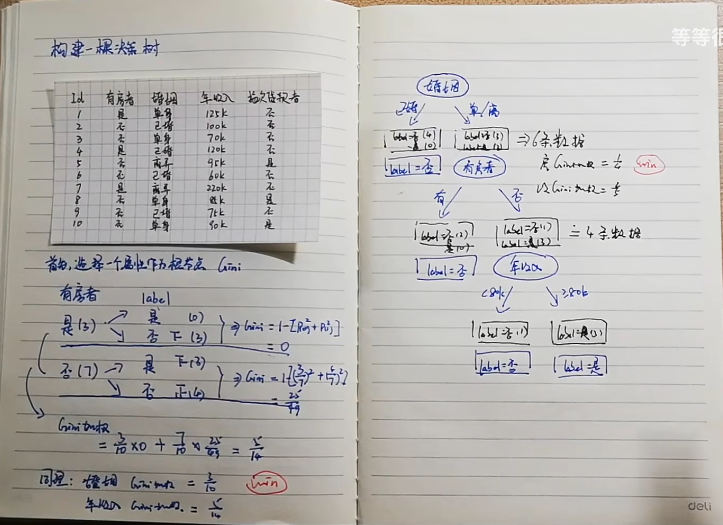 等等很
构建一棵决策树
Id 有房者 婚姻 年收入 拖欠贷款者
1 是 单身 125k 否
2 否 已婚 100k 否
3 否 单身 70k 否
4 是 已婚 120k 否
5 否 离异 95k 是
6 否 已婚 60k 否
7 是 离异 220k 否
8 否 单身 是
9 否 已婚 75k 否
10 否 单身 90k 是
首先,选择一个属性作为根节点 Gini
有房者 label
是(3) → 是 (0)
否 (3)
⇒ Gini = 1-[ ]
= 0
否(7) → 是 (3)
否 (4)
⇒ Gini = 1-[(3/7)²+(4/7)²]
= 25/49
Gini加权
= 3/10×0 + 7/10× = 5/14
同理: 婚姻 Gini加权 = 3/10 min
年收入 Gini加权 = 5/14
婚姻
已婚 单/离
label=否 (4)
是 (0)
label=否(3)
label=是(3)
⇒ 6条数据
label=否
有房者
房 Gini加权 = min
收 Gini加权 =
有 否
label=否(2)
是(0)
label=否(1)
label=是(3)
4条数据
label=否
年收入
<80k ≥80k
label=否(1) label=是(3)
label=否 label=是
deli